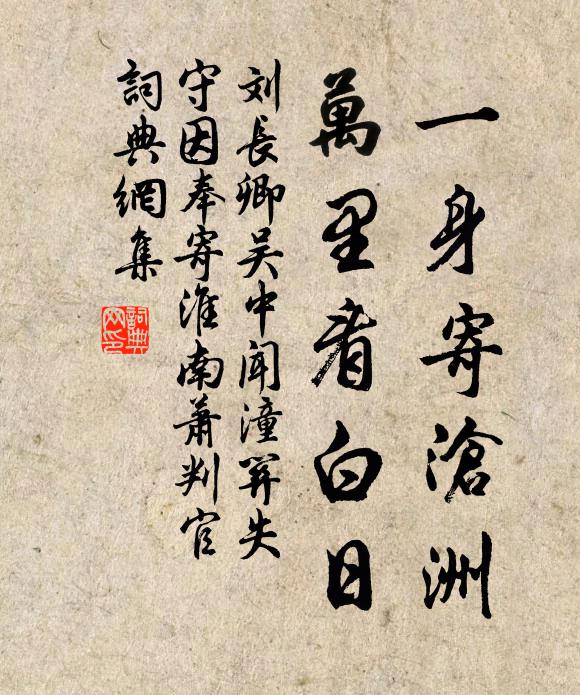 一身寄滄洲
萬里看白日
刘長卿吴中闻潼関失
守因奉寄淮南蕭判官
詞典網集
詞典
网印